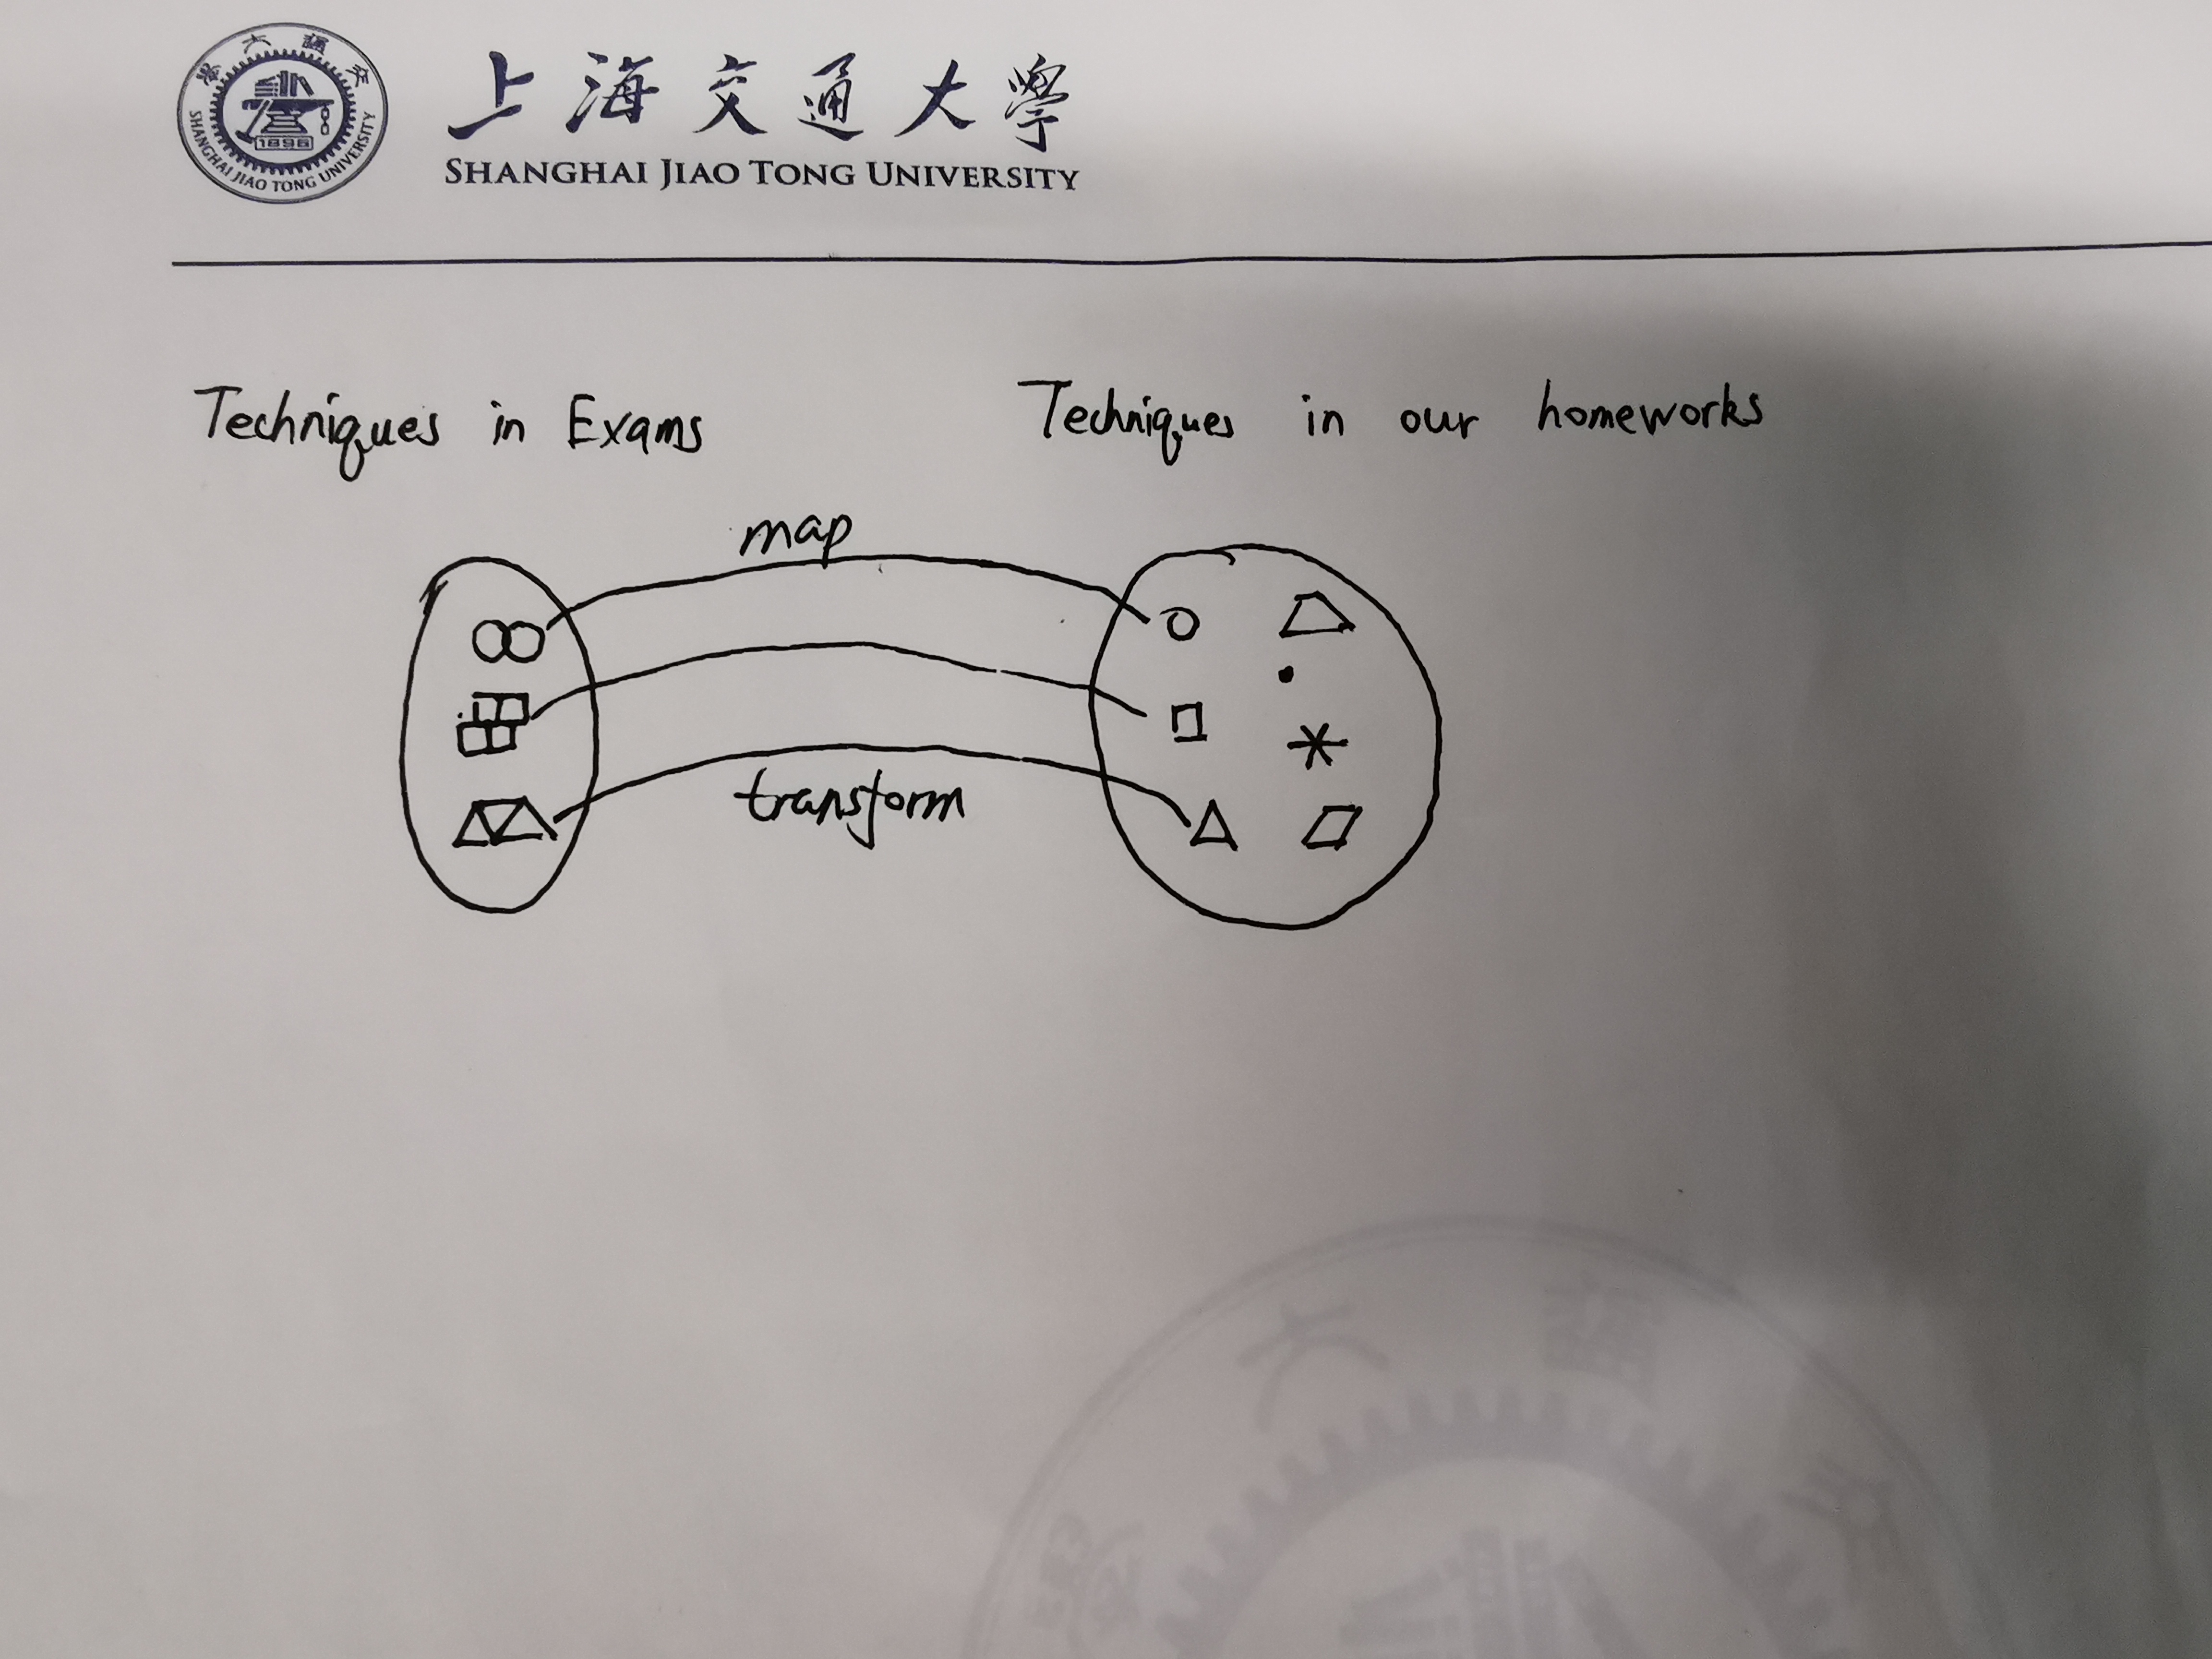 上海交通大學
SHANGHAI JIAO TONG UNIVERSITY
1896
SHANGHAI JIAO TONG UNIVERSITY
Techniques in Exams
Techniques in our homeworks
map
transform
大
通
交